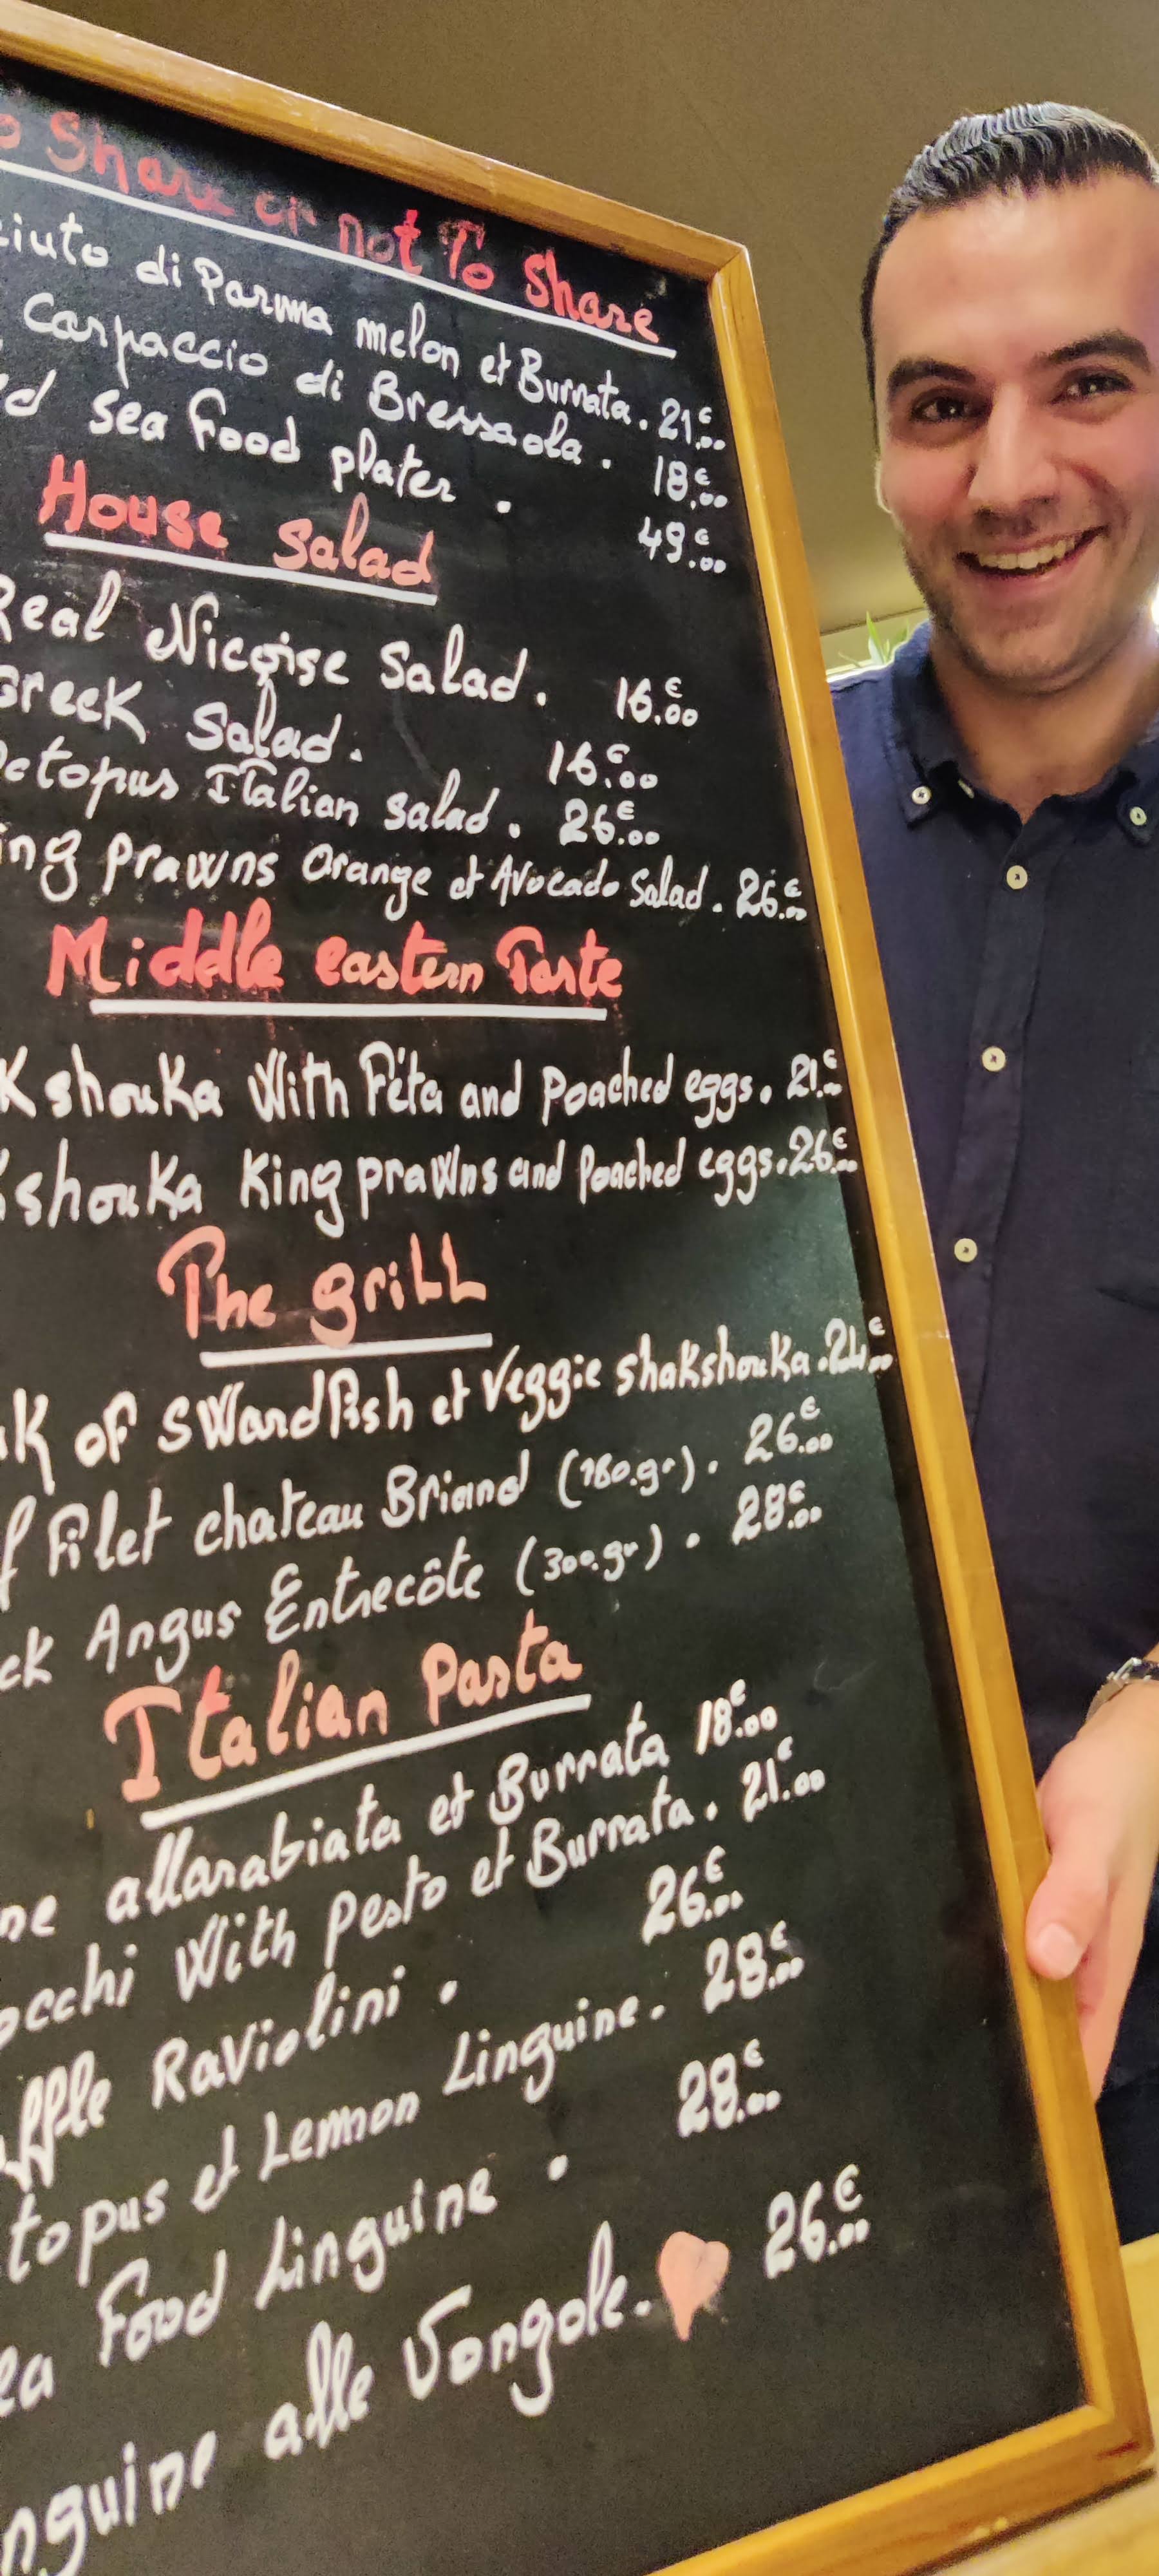 o Share or not To Share
ciuto di Parma melon et Burrata. 21.€00
Carpaccio di Bressaola. 18.€00
ed sea food plater. 49.€00
House Salad
Real Niçoise Salad. 16.€00
Greek Salad. 16.€00
Octopus Italian Salad. 26.€00
ing prawns Orange et Avocado Salad. 26.€00
Middle eastern Taste
Kshouka With Féta and Poached eggs. 21.€00
Kshouka King prawns and Poached eggs. 26.€00
The grill
ak of SWardfish et Veggie shakshouka. 24.€00
f Filet chateau Briand (180.gr). 26.€00
ck Angus Entrecôte (300.gr). 28.€00
Italian Pasta
ne allarabiata et Burrata 18.€00
occhi With pesto et Burrata. 21.€00
uffle Raviolini. 26.€00
topus et Lemon Linguine. 28.€00
ea Food Linguine. 28.€00
nguine alle Vongole. 26.€00